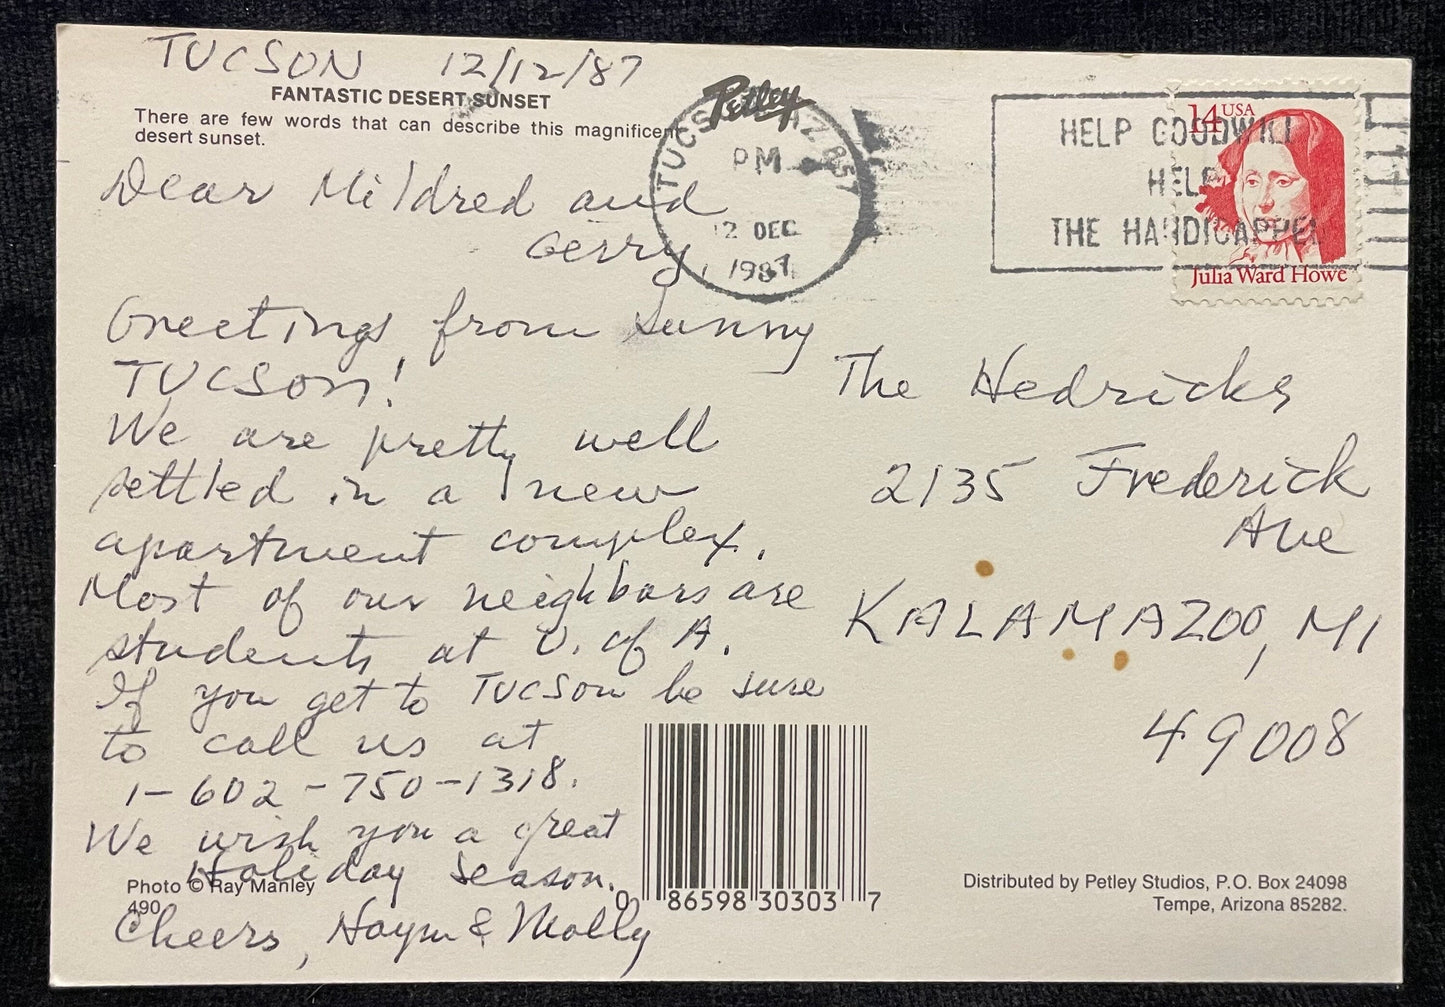 TUCSON 12/12/87
FANTASTIC DESERT SUNSET
There are few words that can describe this magnificent
desert sunset.
Petley
Dear Mildred and
Gerry,
Greetings from Sunny
TUCSON!
We are pretty well
settled in a new
apartment complex.
Most of our neighbors are
students at U. of A.
If you get to TUCSON be sure
to call us at
1-602-750-1318.
We wish you a great
Holiday Season.
Cheers, Haym & Molly
Photo © Ray Manley
490
0 86598 30303 7
TUCSON AZ 857
PM
12 DEC
1987
HELP GOODWILL
HELP
THE HANDICAPPED
14 USA
Julia Ward Howe
The Hedricks
2135 Frederick
Ave
KALAMAZOO, MI
49008
Distributed by Petley Studios, P.O. Box 24098
Tempe, Arizona 85282.